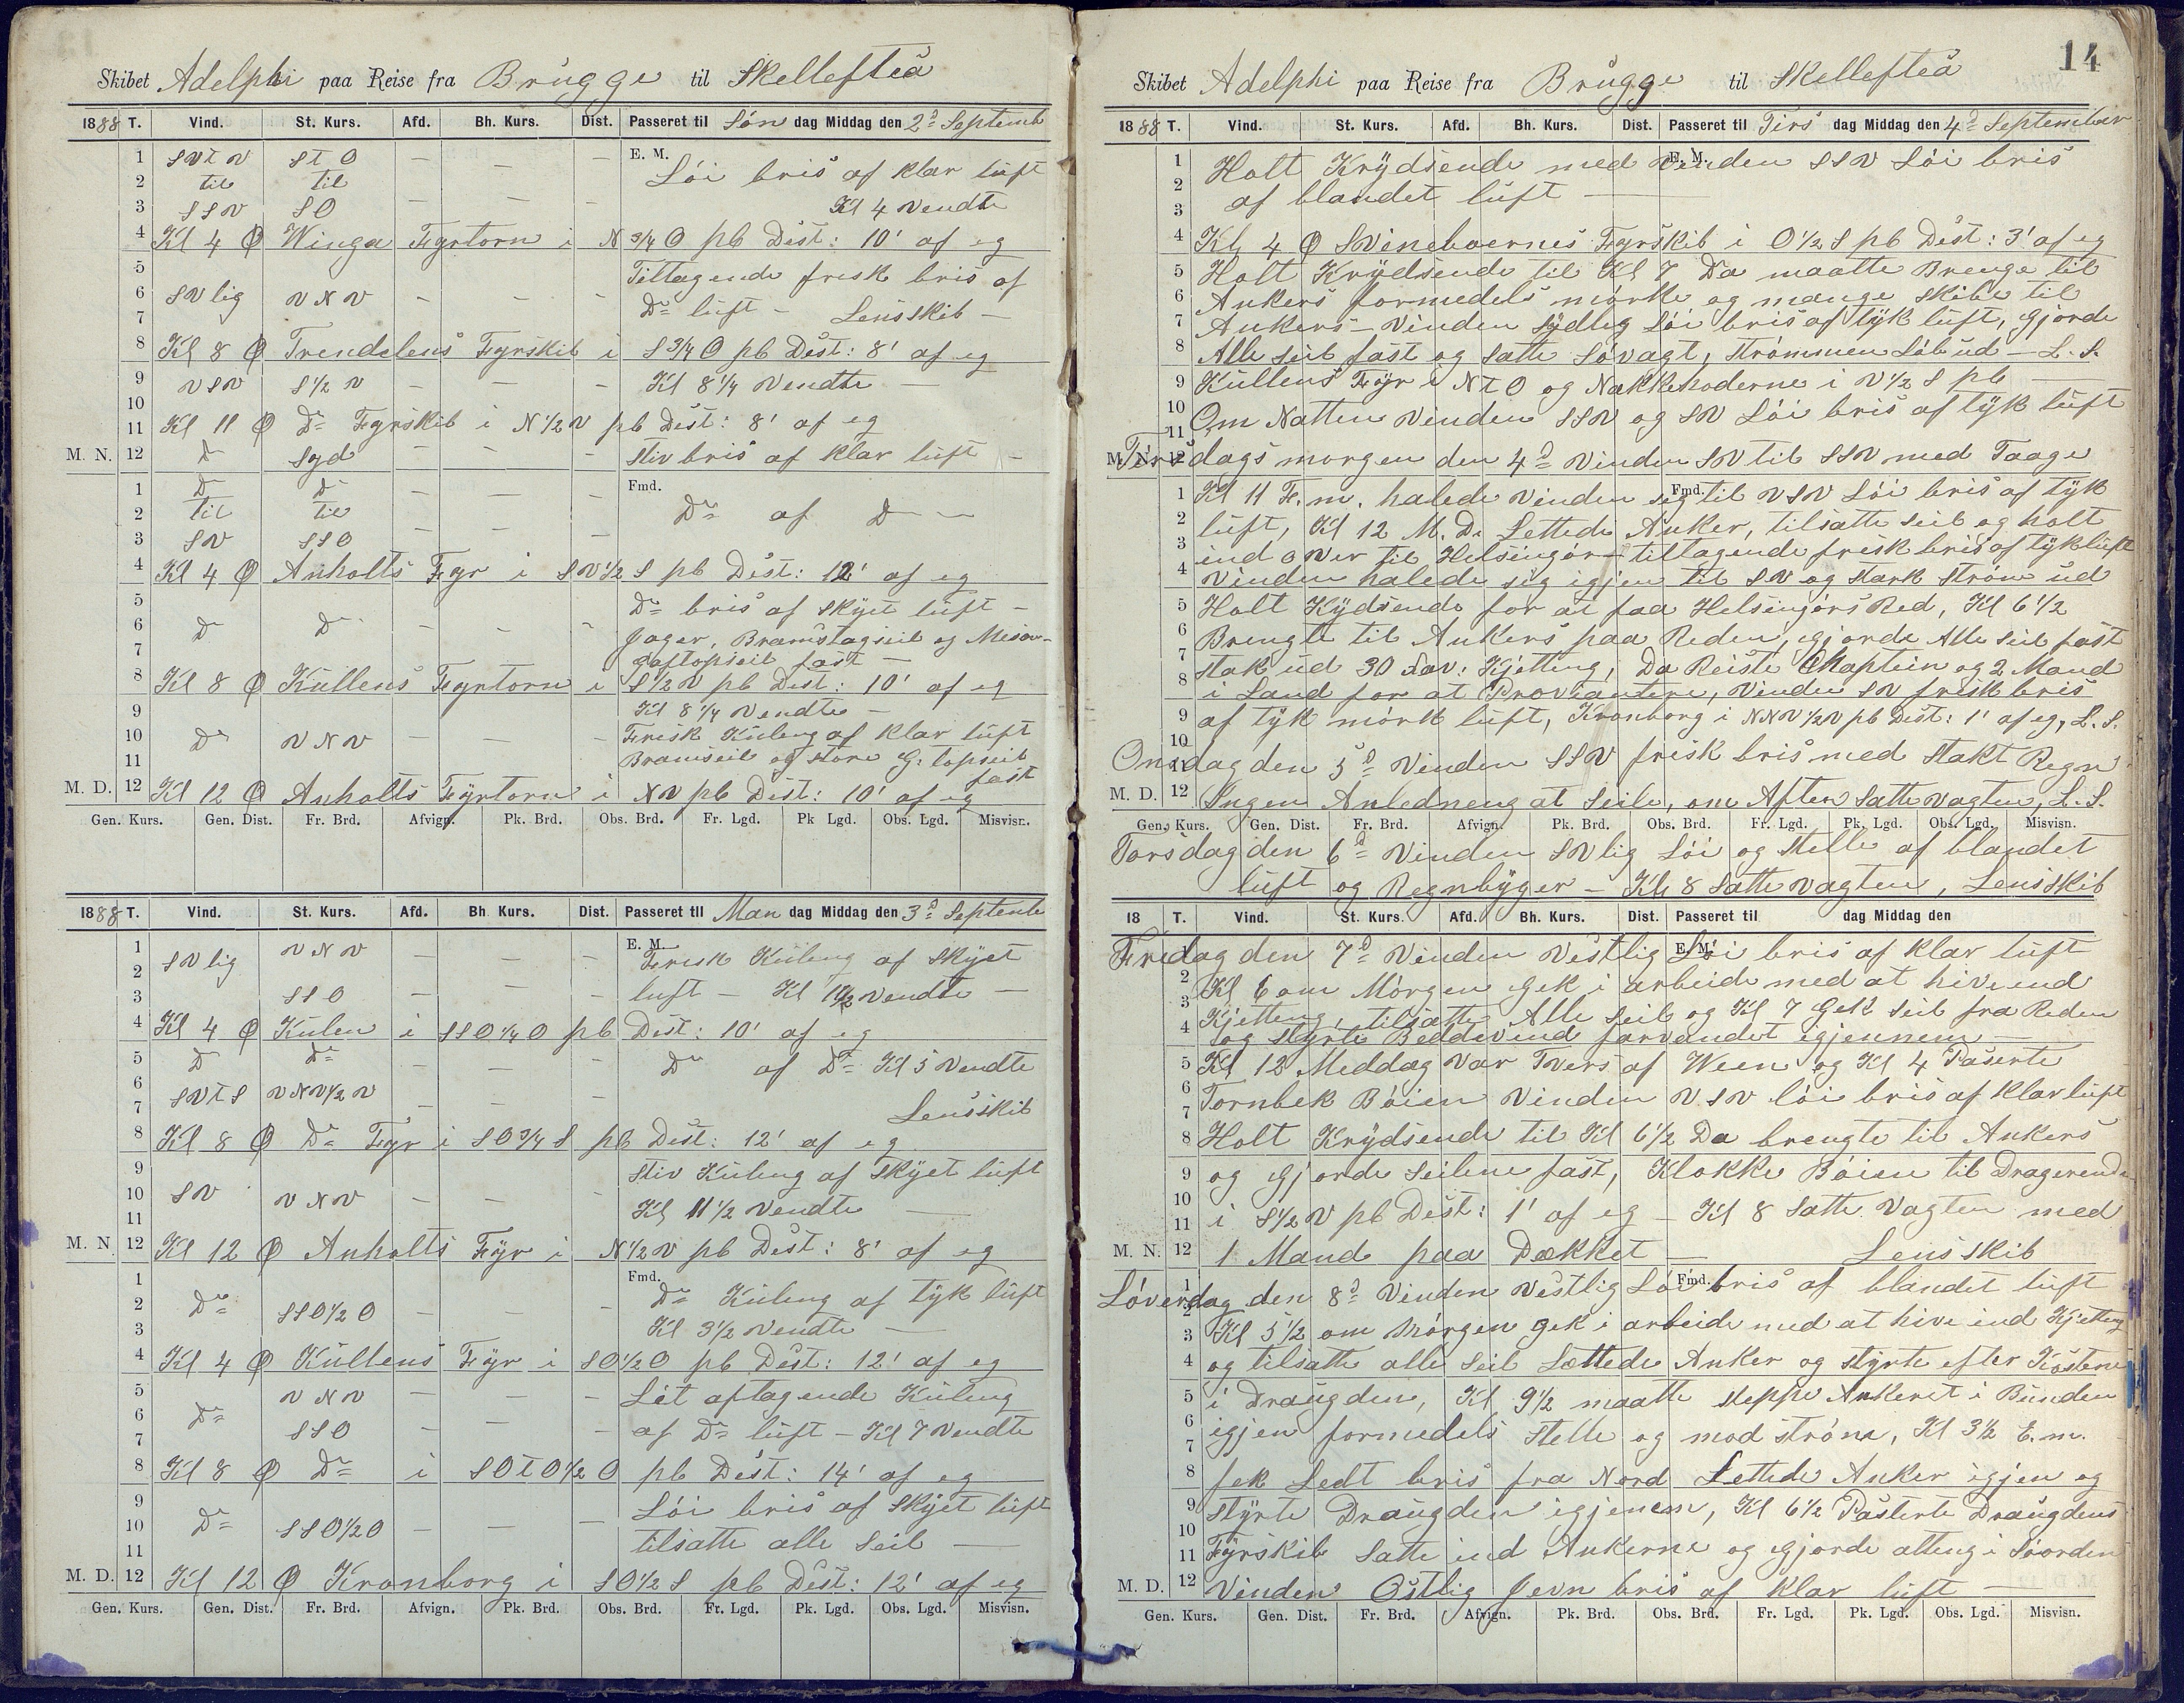 Skibet Adelphi paa Reise fra Brügge til Skellefteå
1888 T. Vind. St. Kurs. Afd. Bh. Kurs. Dist. Passeret til Søn dag Middag den 2d Septemb
1 SVtV StO — — — E. M. Löi bris af klar lüft
2 til til
3 SSV SO — — — Kl 4 Vendte
4 Kl 4 Ø Winga Fyrtorn i N 3/4 O pb Dist: 10' af eg
5 Tiltagende frisk bris af
6 SVlig VNV — — — Do lüft — Lensskib —
7
8 Kl 8 Ø Trendelens Fyrskib i S 3/4 O pb Dist: 8' af eg
9 VSV S 1/2 V — — — Kl 8 1/4 Vendte —
10
11 Kl 11 Ø Do Fyrskib i N 1/2 V pb Dist: 8' af eg
M. N. 12 Do Syd — — — Stiv bris af klar lüft —
1 Do Do — — — Fmd.
2 til til Do af Do —
3 SV SSO — — —
4 Kl 4 Ø Anholts Fyr i SV 1/2 S pb Dist: 12' af eg
5 Do bris af Skÿet lüft —
6 Do Do — — — Jager, Bramstagseil og Mesan-
7 gaftopseil fast —
8 Kl 8 Ø Küllens Fyrtorn i S 1/2 V pb Dist: 10' af eg
9 Kl 8 1/4 Vendte —
10 Do VNV — — — Frisk Küling af klar lüft
11 Bramseil og Store G: topseil
fast
M. D. 12 Kl 12 Ø Anholts Fÿrtorn i NV pb Dist: 10' af eg
Gen. Kurs. Gen. Dist. Fr. Brd. Afvign. Pk. Brd. Obs. Brd. Fr. Lgd. Pk Lgd. Obs. Lgd. Misvisn.
1888 T. Vind. St. Kurs. Afd. Bh. Kurs. Dist. Passeret til Man dag Middag den 3d Septembe
1 SVlig VNV — — — E. M. Frisk Küling af Skÿet
2
3 SSO — — — lüft — Kl 1 1/2 Vendte —
4 Kl 4 Ø Külen i SSO 1/4 O pb Dist: 10' af eg
5 Do Do — — — Do af Do Kl 5 Vendte
6 SVtS VNV 1/2 V — — —
7 Lensskib
8 Kl 8 Ø Do Fyr i SO 3/4 S pb Dist: 12' af eg
9 Stiv Küling af Skÿet lüft
10 SV VNV — — — Kl 11 1/2 Vendte —
11
M. N. 12 Kl 12 Ø Anholts Fÿr i N 1/2 V pb Dist: 8' af eg
1 Fmd. Do Küling af tÿk lüft
2 Do SSO 1/2 O — — —
3 Kl 3 1/2 Vendte —
4 Kl 4 Ø Küllens Fÿr i SO 1/2 O pb Dist: 12' af eg
5 VNV — — — Lit aftagende Küling
6 Do
7 SSO — — — af Do lüft — Kl 7 Vendte
8 Kl 8 Ø Do i SOtO 1/2 O pb Dist: 14' af eg
9 Löi bris af Skÿet lüft
10 Do SSO 1/2 O — — — tilsatte alle Seil —
11
M. D. 12 Kl 12 Ø Kronborg i SO 1/2 S pb Dist: 12' af eg
Gen. Kurs. Gen. Dist. Fr. Brd. Afvign. Pk. Brd. Obs. Brd. Fr. Lgd. Pk. Lgd. Obs. Lgd. Misvisn.
14
Skibet Adelphi paa Reise fra Brügge til Skellefteå
1888 T. Vind. St. Kurs. Afd. Bh. Kurs. Dist. Passeret til Tirs dag Middag den 4d September
1 Holt Krÿdsende med Vinden SSV Löi bris E. M.
2
3 af blandet lüft —
4 Kl 4 Ø Svineboernes Fyrskib i O 1/2 S pb Dist: 3' af eg
5 Holt Krÿdsende til Kl 7 Da maatte Brenge til
6 Ankers formedels mörke og mange Skibe til
7 Ankers — Vinden Sÿdlig Löi bris af tÿk lüft, gjorde
8 Alle Seil fast og Satte Sövagt, Strömmen Löb ud — L. S.
9 Küllens Fÿr i NtO og Nakkehoderne i V 1/2 S pb —
10
11 Om Natten Vinden SSV og SV Löi bris af tÿk lüft
M. N. 12 Tirsdags morgen den 4d Vinden SV til SSV med Taage
1 Kl 11 F.m. halede Vinden seg til VSV Löi bris af tÿk Fmd.
2 lüft, Kl 12 M. D. Lettede Anker, tilsatte Seil og holt
3 ind over til Helsingör — tiltagende frisk bris af tÿk lüft
4 Vinden halede sig igjen til SV og Stark Ström ud
5 Holt Kÿdsende for at faa Helsingörs Red, Kl 6 1/2
6 Brengte til Ankers paa Reden, gjorde Alle Seil fast
7 Stak ud 30 Fav: Kjetting, Da Reiste Kaptein og 2 Mand
8 i Land for at Proviantere, Vinden SV frisk bris
9 af tÿk mörk lüft, Kronborg i NNV 1/2 V pb Dist: 1' af eg, L. S.
10
11 Onsdag den 5d Vinden SSV frisk bris med Stakt Regn
M. D. 12 Ingen Anledneng at Seile, om Aften Satte Vagten, L. S.
Gen. Kurs. Gen. Dist. Fr. Brd. Afvign. Pk. Brd. Obs. Brd. Fr. Lgd. Pk. Lgd. Obs. Lgd. Misvisn.
Torsdag den 6d Vinden SVlig Löi og Stelle af blandet
lüft og Regnbÿger — Kl 8 Satte Vagten, Lensskib
18 T. Vind. St. Kurs. Afd. Bh. Kurs. Dist. Passeret til dag Middag den
1 Fredag den 7d Vinden Vestlig Löi bris af klar lüft E. M.
2 Kl 6 om Mörgen Gek i arbeide med at hive ind
3 Kjetteng, tilsatte Alle Seil og Kl 7 Gek Seil fra Reden
4 og Stÿrte Beddevind farvandet igjennem —
5 Kl 12 Meddag Var Tvers af Ween og Kl 4 Paserte
6
7 Tornbek Böien Vinden VSV löi bris af klar lüft
8 Holt Krÿdsende til Kl 6 1/2 Da brengte til Ankers
9 og gjorde Seilene fast, Klokke Böien til Dragerende
10
11 i S 1/2 V pb Dist: 1' af eg — Kl 8 Satte Vagten med
M. N. 12 1 Mand paa Dækket — Lensskib
1 Löverdag den 8d Vinden Vestlig Löi bris af blandet lüft Fmd.
2
3 Kl 5 1/2 om Mörgen gek i arbeide med at hive ind Kjetteng
4 og tilsatte alle Seil Lettede Anker og Stÿrte efter Kosterne
5 i Draugden, Kl 9 1/2 maatte Steppe Ankeret i Bunden
6
7 igjen formedels Stelle og mod Ström, Kl 3 1/2 E.m.
8 fek Ledt bris fra Nord Lettede Anker igjen og
9 Stÿrte Draugden igjenem, Kl 6 1/2 Pasterte Draugdens
10
11 Fÿrskib Satte ind Ankerne og gjorde atteng i Söorden
M. D. 12 Vinden Ostlig Jevn bris af klar lüft —
Gen. Kurs. Gen. Dist. Fr. Brd. Afvign. Pk. Brd. Obs. Brd. Fr. Lgd. Pk. Lgd. Obs. Lgd. Misvisn.